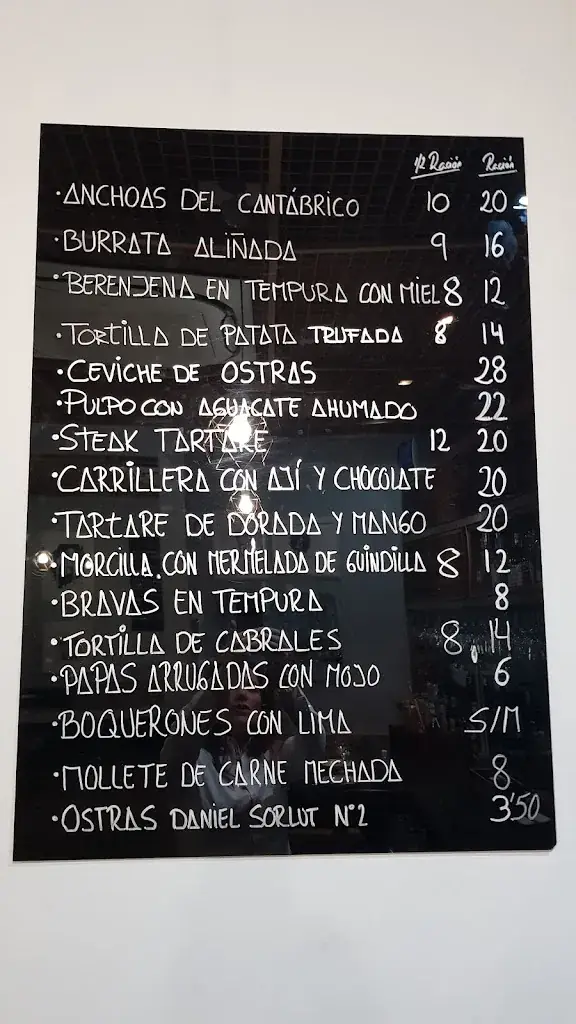 1/2 Ración Ración
·ANCHOAS DEL CANTÁBRICO 10 20
·BURRATA ALIÑADA 9 16
·BERENJENA EN TEMPURA CON MIEL 8 12
·TORTILLA DE PATATA TRUFADA 8 14
·CEVICHE DE OSTRAS 28
·PULPO CON AGUACATE AHUMADO 22
·STEAK TARTARE 12 20
·CARRILLERA CON AJÍ Y CHOCOLATE 20
·TARTARE DE DORADA Y MANGO 20
·MORCILLA CON MERMELADA DE GUINDILLA 8 12
·BRAVAS EN TEMPURA 8
·TORTILLA DE CABRALES 8 14
·PAPAS ARRUGADAS CON MOJO 6
·BOQUERONES CON LIMA S/M
·MOLLETE DE CARNE MECHADA 8
·OSTRAS DANIEL SORLUT Nº2 3'50